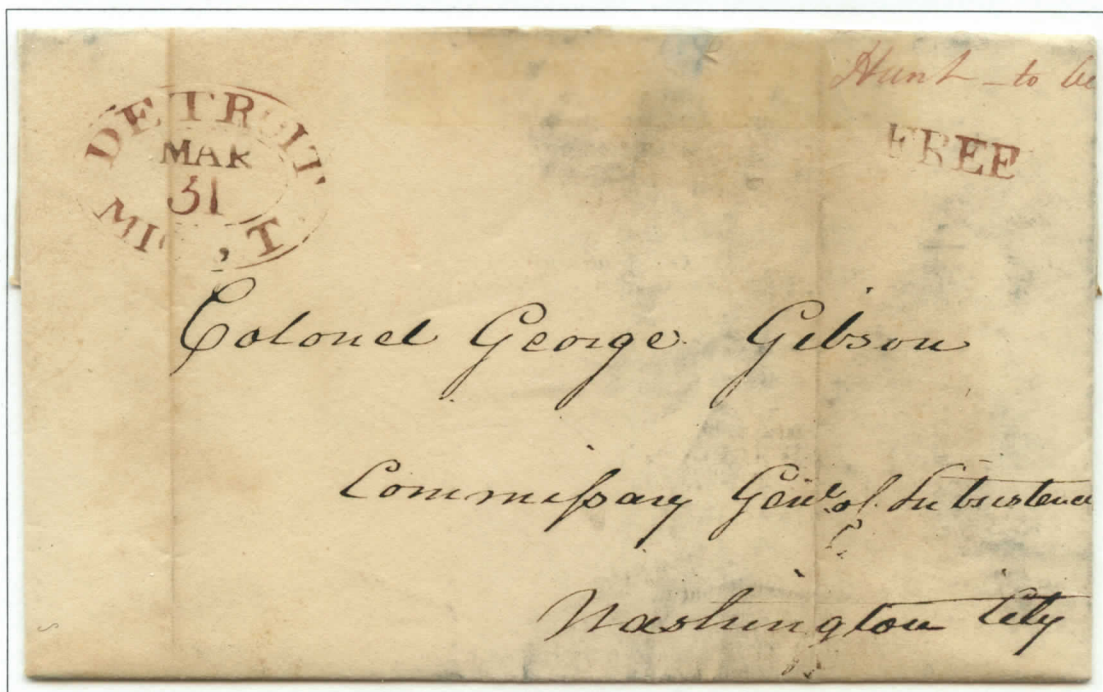 DETROIT
MAR
31
MIC, T
Hunt - to be
FREE
Colonel George Gibson
Commissary Genl. of Subsistence
Washington City